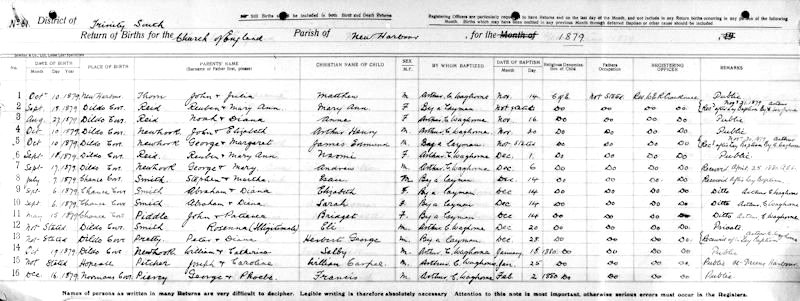 No. 51. District of Trinity South
NOTE.—Still Births should be included in both Birth and Death Returns
Registering Officers are particularly requested to have Returns end on the last day of the Month, and not include in any Return births occurring in any portion of the following Month. Births which may have been omitted in any previous Month through deferred Baptism or other cause should be included
Return of Births for the Church of England Parish of New Harbour, for the Month of 1879 19
No. DATE OF BIRTH Month Day Year PLACE OF BIRTH PARENTS' NAME (Surname of Father first, please) CHRISTIAN NAME OF CHILD SEX M.F. BY WHOM BAPTIZED DATE OF BAPTISM Month Day Religious Denomination of Child Fathers Occupation REGISTERING OFFICER REMARKS
1 Oct 10 1879 New Harbour Thorn John & Julia Matthew M. Arthur C. Waghorne Nov. 14 C of E Not Stated Public
2 Sept 1879 Dildo Cove Reid Reuben & Mary Ann Mary Ann F By a Layman Not stated Do Do Do Recd after lay Baption By A Waghorne
3 Aug 27 1879 Dildo Cove Reid Noah & Diana Anne F Arthur C. Waghorne Nov. 16 Do Do Do Public
4 Oct 10 1879 Dildo Cove Newhook John & Elizabeth Arthur Henry M. Arthur C. Waghorne Nov. 30 Do Do Do Public
5 Oct 10 1879 Dildo Cove Newhook George & Margaret James Edmund M. By a Layman Not Stated Do Do Do Nov 30, 1879 Arthur Recd after lay Baption C. Waghorne
6 Sept 18 1879 Dildo Cove Reid Reuben & Mary Ann Naomi F Arthur C. Waghorne Dec. 1 Do Do Do Public
7 Sept 17 1879 Dildo Cove Newhook George & Mary Andrew M Arthur C. Waghorne Dec 6 Do Do Do
8 July 7 1879 Chance Cove Smith Stephen & Martha Isaac M By a Layman Dec. 14 Do Do Do Received after lay Baption
9 Sept 6 1879 Chance Cove Smith Abraham & Diana Elizabeth F. By a Layman Dec 14 Do Do Do Ditto Arthur C Waghorne
10 Sept 6 1879 Chance Cove Smith Abraham & Diana Sarah F By a Layman Dec 14 Do Do Do Ditto Arthur C Waghorne
11 May 15 1879 Chance Cove Piddle John & Patience Bridget F. By a Layman Dec 14 Do Do Do Ditto Arthur C Waghorne
12 Not Stated Dildo Cove Smith Rosenna (Illegitimate) Eli M Arthur C Waghorne Dec 20 Do Do Do Private
13 Not Stated Dildo Cove Pretty Peter & Diana Herbert George M. By a Layman Dec. 28 Do Do Do Received after lay Baption
14 Oct 1879 Dildo Cove Newhook William & Catherine Selby M. Arthur C. Waghorne January 18 1880 Do Do Do Public
15 Not Stated Hopeall Pitcher Joseph & Caroline William M Arthur C. Waghorne Jan. 25 Do Do Do Public At Greens Harbour
16 Dec 16 1879 Normans Cove Piercy George & Phoebe Francis M. Arthur C. Waghorne Feb 2 1880 Do Do Do Public
Names of persons as written in many Returns are very difficult to decipher. Legible writing is therefore absolutely necessary Attention to this note is most important, otherwise serious errors must occur in the Registers.